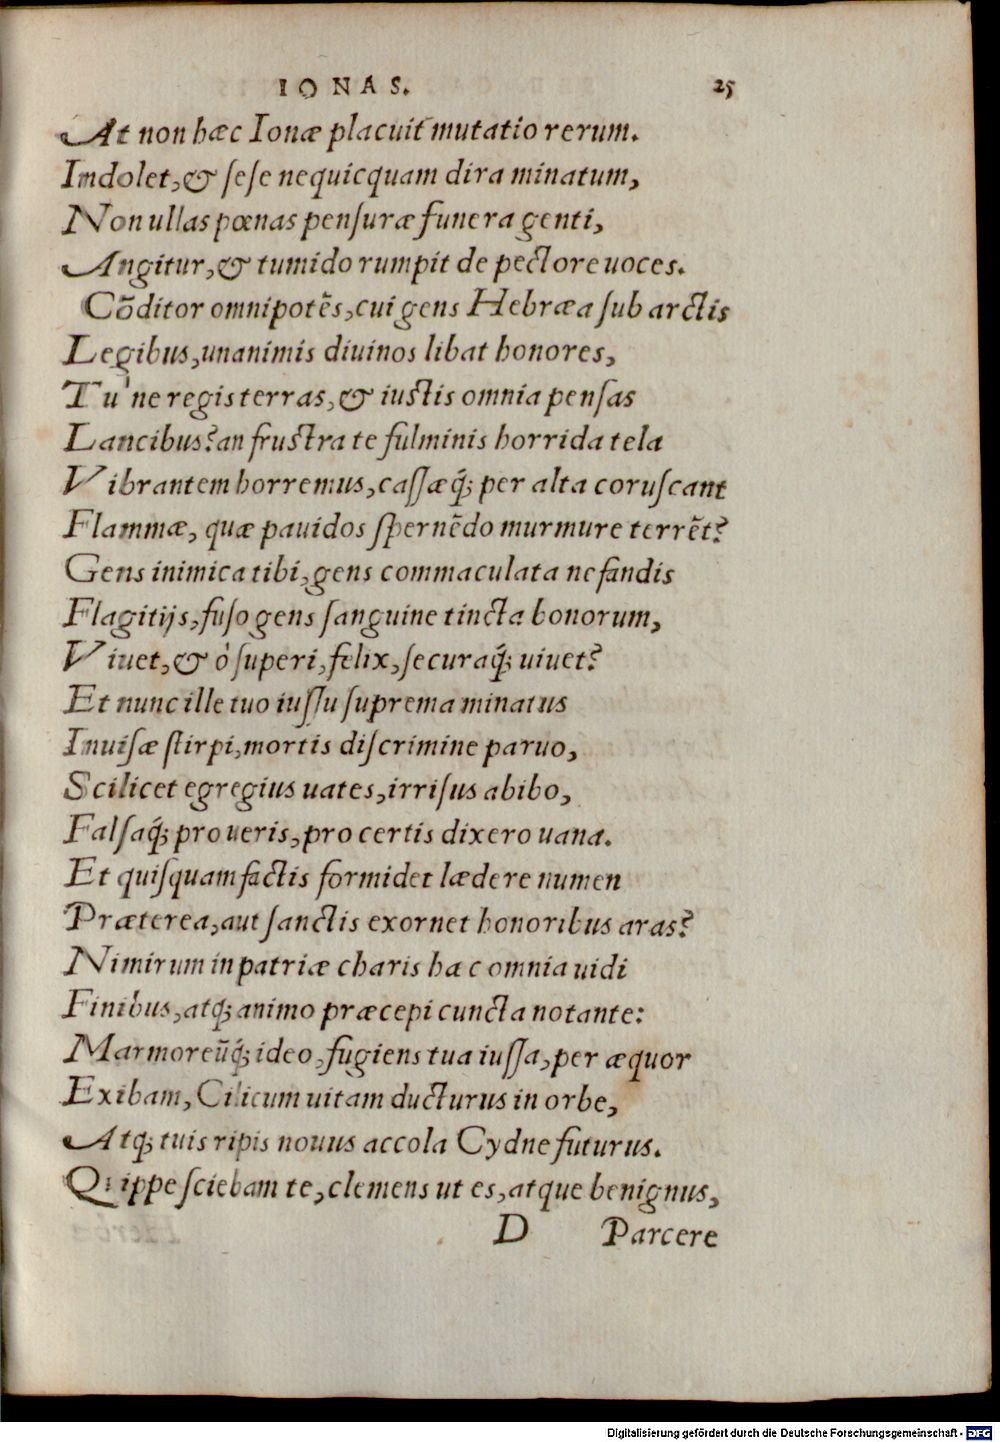 IONAS. 25
At non hæc Ionæ placuit mutatio rerum.
Indolet, & ſeſe nequicquam dira minatum,
Non ullas pœnas penſuræ funera genti,
Angitur, & tumido rumpit de pectore uoces.
Cõditor omnipotẽs, cui gens Hebræa ſub arctis
Legibus, unanimis diuinos libat honores,
Tu'ne regis terras, & iuſtis omnia penſas
Lancibus? an fruſtra te fulminis horrida tela
Vibrantem horremus, caſſæq́; per alta coruſcant
Flammæ, quæ pauidos ſpernẽdo murmure terrẽt?
Gens inimica tibi, gens commaculata nefandis
Flagitijs, fuſo gens ſanguine tincta bonorum,
Viuet, & ò ſuperi, felix, ſecuraq́; uiuet?
Et nunc ille tuo iuſſu ſuprema minatus
Inuiſæ ſtirpi, mortis diſcrimine paruo,
Scilicet egregius uates, irriſus abibo,
Falſaq́; pro ueris, pro certis dixero uana.
Et quiſquam factis formidet lædere numen
Præterea, aut ſanctis exornet honoribus aras?
Nimirum in patriæ charis hac omnia uidi
Finibus, atq; animo præcepi cuncta notante:
Marmoreũq́; ideo, fugiens tua iuſſa, per æquor
Exibam, Cilicum uitam ducturus in orbe,
Atq; tuis ripis nouus accola Cydne futurus.
Quippe ſciebam te, clemens ut es, atque benignus,
D Parcere
Digitalisierung gefördert durch die Deutsche Forschungsgemeinschaft - DFG